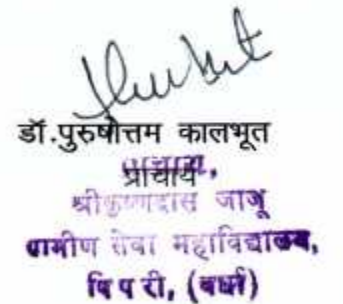 डॉ.पुरुषोत्तम कालभूत
प्राचार्य
प्राचार्य,
श्रीकृष्णदास जाजू
ग्रामीण सेवा महाविद्यालय,
पिपरी, (वर्धा)